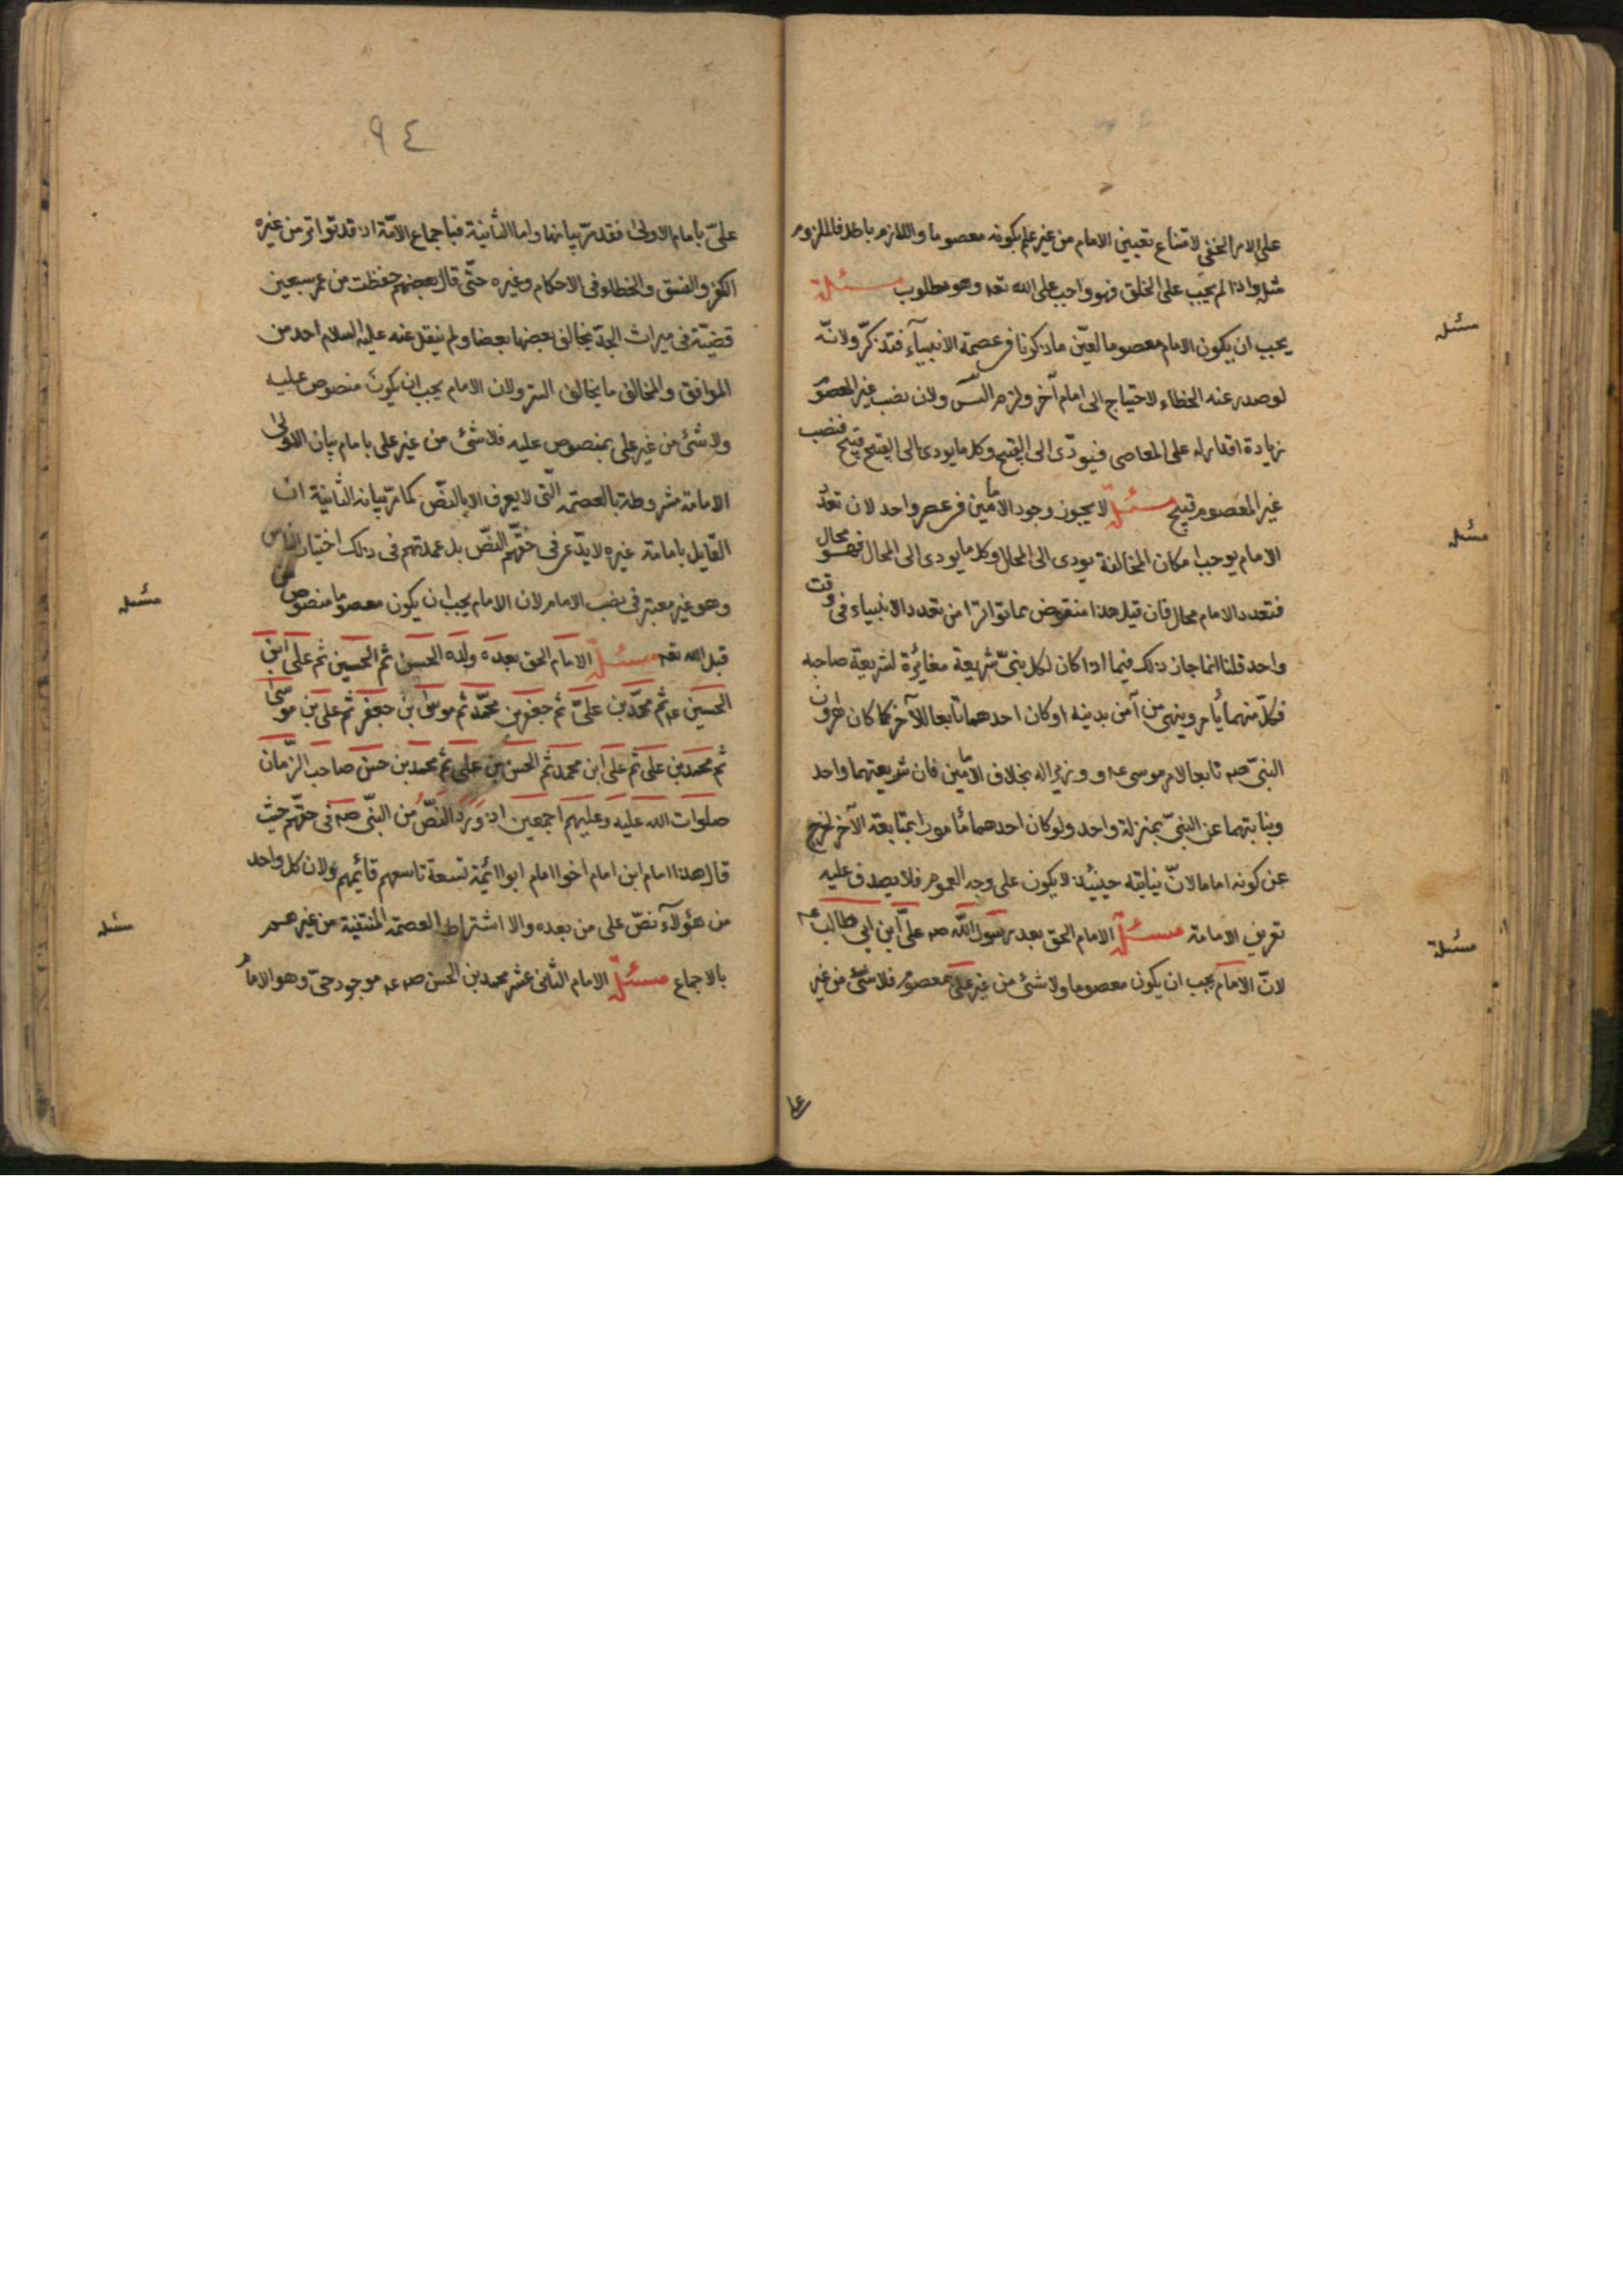 على الامر الخفى لامتناع تعيين الامام من غير علم بكونه معصوما واللازم باطل فالملزوم
مثله واذا لم يجب على الخلق فهو واجب على الله تعه وهو مطلوب مسئلة
يجب ان يكون الامام معصوما لعين ما ذكرنا فى عصمة الانبيآء فتذكّر ولانّه
لو صدر عنه الخطاء لاحتياج الى امام آخر ولزم التس ولان نصب غير المعصوم
زيادة اقدار له على المعاصى فيودّى الى القبيح وكل ما يودى الى القبيح قبيح فنصب
غير المعصوم قبيح مسئلة لا يجوز وجود الامامين فى عصر واحد لان تعدّد
الامام يوجب امكان المخالفة يودى الى المحال وكل ما يودى الى المحال فهو محال
فتعدد الامام محال فان قيل هذا منقوض بما تواترا من تعدد الانبياء فى وقت
واحد قلنا انما جاز ذلك فيما اذا كان لكل بنىّ شريعة مغائرة لشريعة صاحبه
فكلّ منهما يأمر وينهى من آمن بدينه او كان احدهما تابعا للآخر كما كان هرون
النبىّ صه تابعا لامر موسى عه ووزيرا له بخلاف الامامين فان شريعتهما واحد
ونيابتهما عن النبىّ بمنزلة واحد ولو كان احدهما مأمورا بمتابعة الآخر لخرج
عن كونه اماما لانّ نيابته حينئذ لا يكون على وجه العموم فلا يصدق عليه
تعريف الامامة مسئلة الامام الحق بعد رسول اللّه صه علىّ ابن ابى طالب عه
لانّ الامام يجب ان يكون معصوما ولا شئ من غير على بمعصوم فلا شئ من غير
مسئله
مسئله
مسئلة
على
٩٤
علىّ بامام الاولى فقد مرّ بيانها واما الثانية فباجماع الامّة اذ قد تواتر من غيره
الكفر والفسق والخطاء فى الاحكام وغيره حتّى قال بعضهم حفظت من عمر سبعين
قضيّة فى ميراث الجدّ يخالف بعضها بعضا ولم ينقل عنه عليه السلام احد من
الموافق والمخالف ما يخالف الستر ولان الامام يجب ان يكون منصوص عليه
ولا شئ من غير على بمنصوص عليه فلا شئ من غير على بامام بيان الاولى
الامامة مشروطة بالعصمة الّتى لا يعرف الا بالنصّ كما مرّ بيانه الثانية ان
القايل بامامة غيره لا يدّعى فى حقّهم النصّ بل عمدتهم فى ذلك اختيار الناس
وهو غير معتبر فى نصب الامام لان الامام يجب ان يكون معصوما منصوص من
قبل الله تعه مسئلة الامام الحق بعده ولده الحسن ثم الحسين ثم على ابن
الحسين عه ثم محمّد بن علىّ ثم جعفر بن محمّد ثم موسى ابن جعفر ثم على بن موسى
ثم محمد بن على ثم على ابن محمد ثم الحسن بن على ثم محمد بن حسن صاحب الزّمان
صلوات الله عليه وعليهم اجمعين اذ ورد النصّ من النبّى صه فى حقّهم حيث
قال هذا امام ابن امام اخوا امام ابوا ائمّة تسعة تاسعهم قائمهم ولان كل واحد
من هؤلآء نصّ على من بعده والا اشتراط العصمة المنتفية من غير هم
بالاجماع مسئلة الامام الثانى عشر محمد بن الحسن صه عه موجود حىّ وهو الامام
مسئله
مسئله